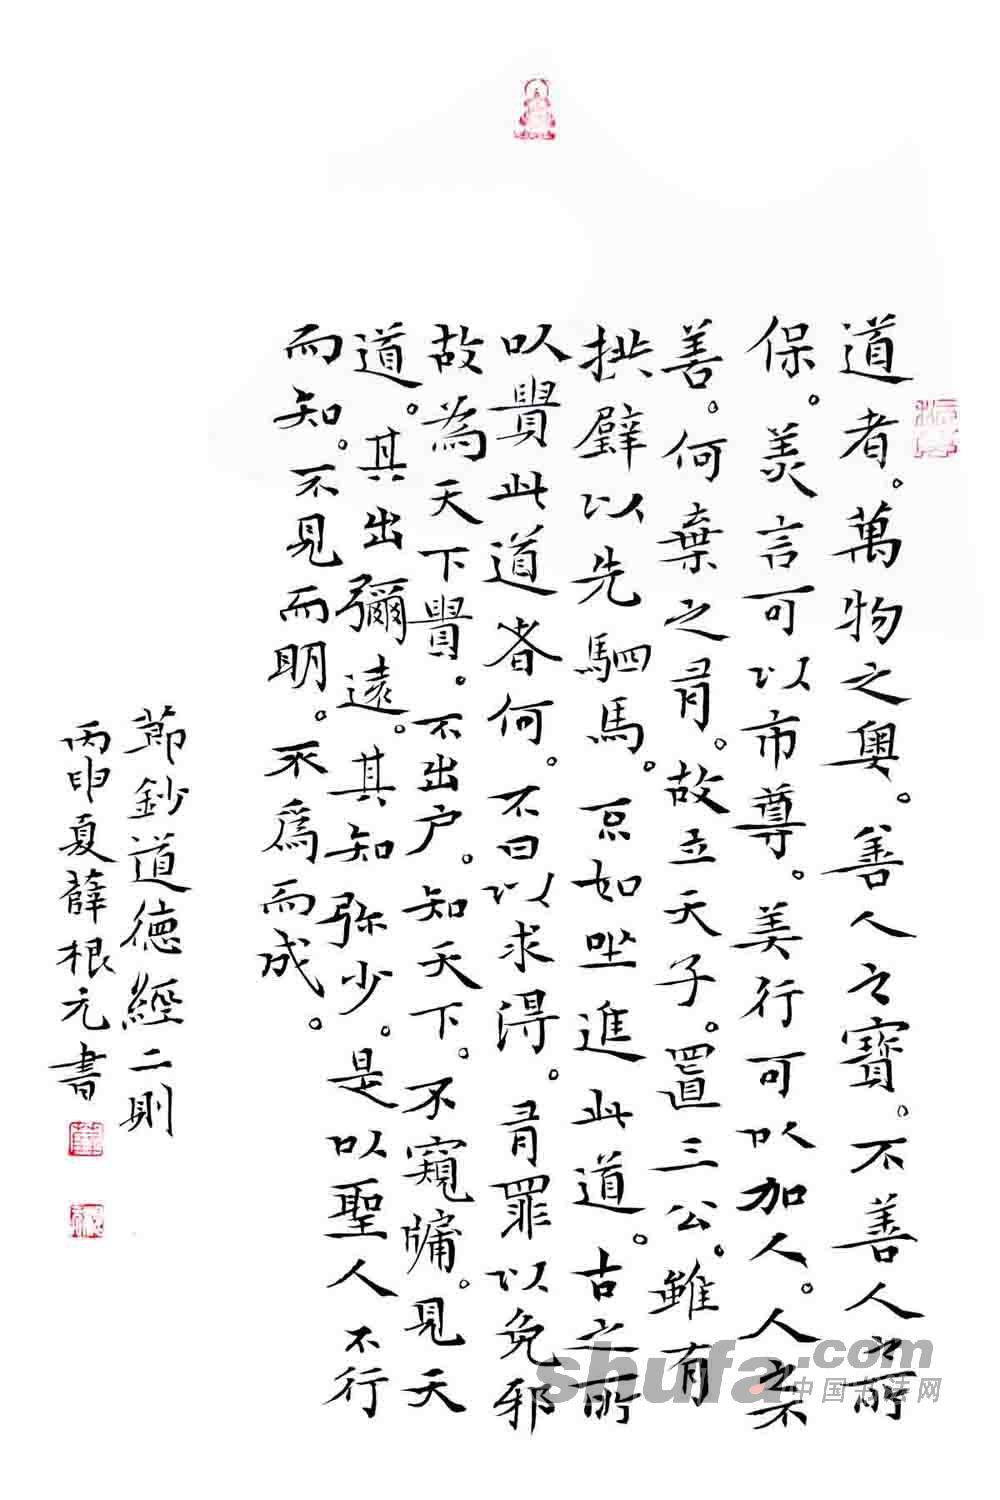 道者。萬物之奧。善人之寶。不善人之所
保。美言可以市尊。美行可以加人。人之不
善。何棄之有。故立天子。置三公。雖有
拱璧以先駟馬。不如坐進此道。古之所
以貴此道者何。不曰以求得。有罪以免邪
故為天下貴。不出户。知天下。不窺牖。見天
道。其出彌遠。其知弥少。是以聖人不行
而知。不見而明。不爲而成。
節鈔道德經二則
丙申夏薛根元書
shufa.com
中国书法网